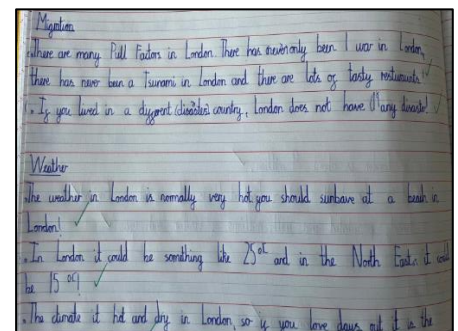 Migration
There are many Pull Factors in London. There has only been 1 war in London,
there has never been a Tsunami in London and there are lots of tasty resturaunts!
• If you lived in a (disaster) country, London does not have any disaster!
Weather
The weather in London is normally very hot you should sunbave at a beach in
London!
• In London it could be somithing like 25°C and in the North East it could
be 15°C!
• The climate it hot and dry in London, so if you love days out it is the